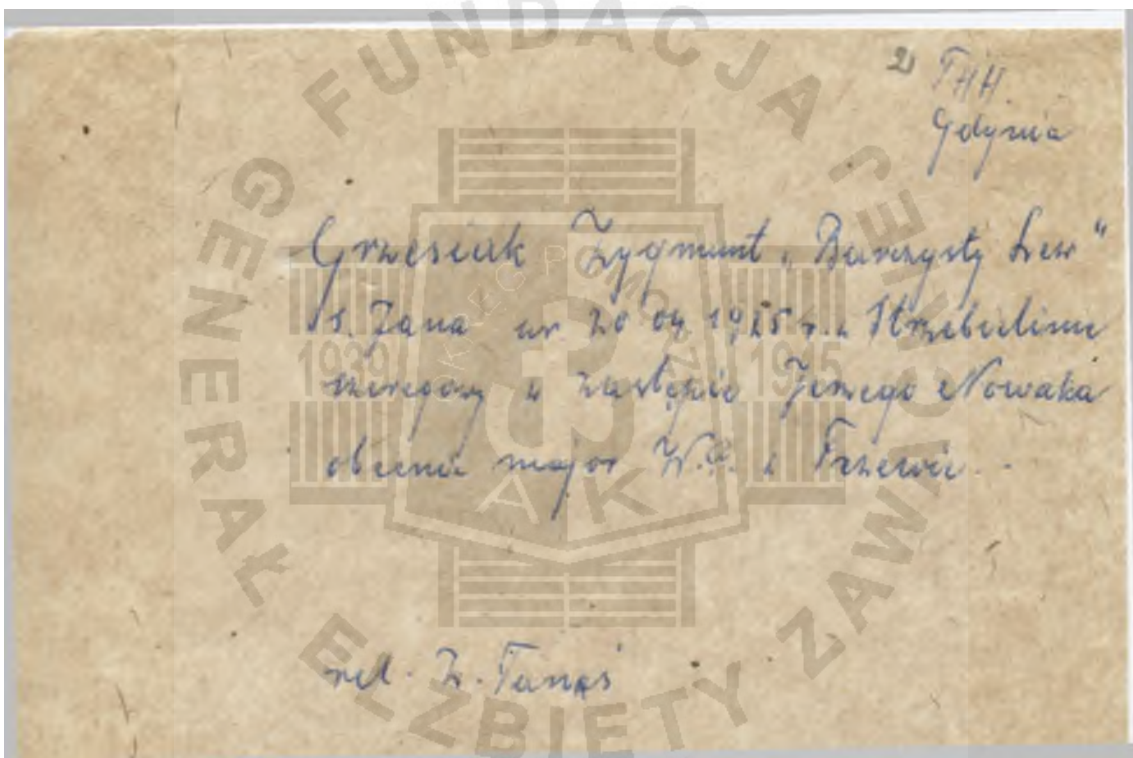 2) THH.
Gdynia
Grzesiak Zygmunt „Barczysty Lew"
s. Jana ur. 20 04 1925 r. w Strzebielinie
szeregowy w zastępie Jerzego Nowaka
obecnie major W.P. w Tczewie.
rel. Z. Tunaś
FUNDACJA GENERAŁ ELŻBIETY ZAWACKIEJ
OKRĘG POMORZE
1939 1945
AK